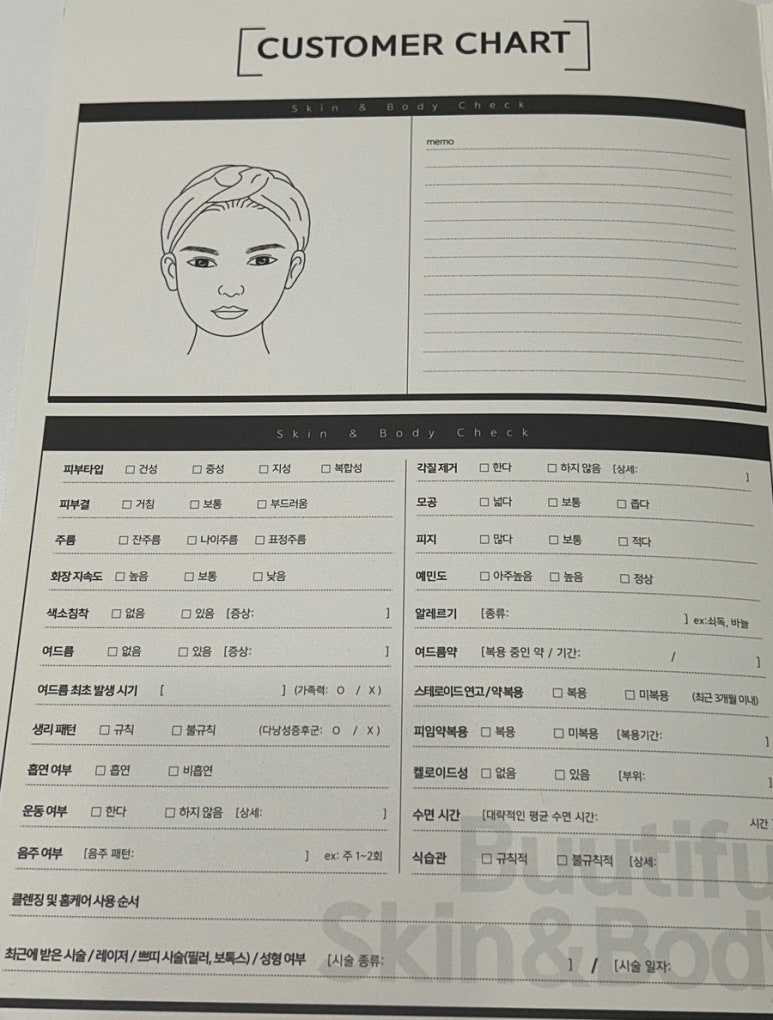 CUSTOMER CHART
Skin & Body Check
memo
Skin & Body Check
피부타입 □ 건성 □ 중성 □ 지성 □ 복합성
각질 제거 □ 한다 □ 하지 않음 [상세: ]
피부결 □ 거침 □ 보통 □ 부드러움
모공 □ 넓다 □ 보통 □ 좁다
주름 □ 잔주름 □ 나이주름 □ 표정주름
피지 □ 많다 □ 보통 □ 적다
화장 지속도 □ 높음 □ 보통 □ 낮음
예민도 □ 아주높음 □ 높음 □ 정상
색소침착 □ 없음 □ 있음 [증상: ]
알레르기 [종류: ] ex:쇠독, 바늘
여드름 □ 없음 □ 있음 [증상: ]
여드름약 [복용 중인 약 / 기간: / ]
여드름 최초 발생 시기 [ ] (가족력: O / X )
스테로이드 연고 / 약 복용 □ 복용 □ 미복용 (최근 3개월 이내)
생리 패턴 □ 규칙 □ 불규칙 (다낭성증후군: O / X )
피임약복용 □ 복용 □ 미복용 [복용기간: ]
흡연 여부 □ 흡연 □ 비흡연
켈로이드성 □ 없음 □ 있음 [부위: ]
운동 여부 □ 한다 □ 하지 않음 [상세: ]
수면 시간 [대략적인 평균 수면 시간: 시간
음주 여부 [음주 패턴: ] ex: 주 1~2회
식습관 □ 규칙적 □ 불규칙적 [상세:
클렌징 및 홈케어 사용 순서
최근에 받은 시술 / 레이저 / 쁘띠 시술(필러, 보톡스) / 성형 여부 [시술 종류: ] / [시술 일자:
Buutifu
Skin&Body